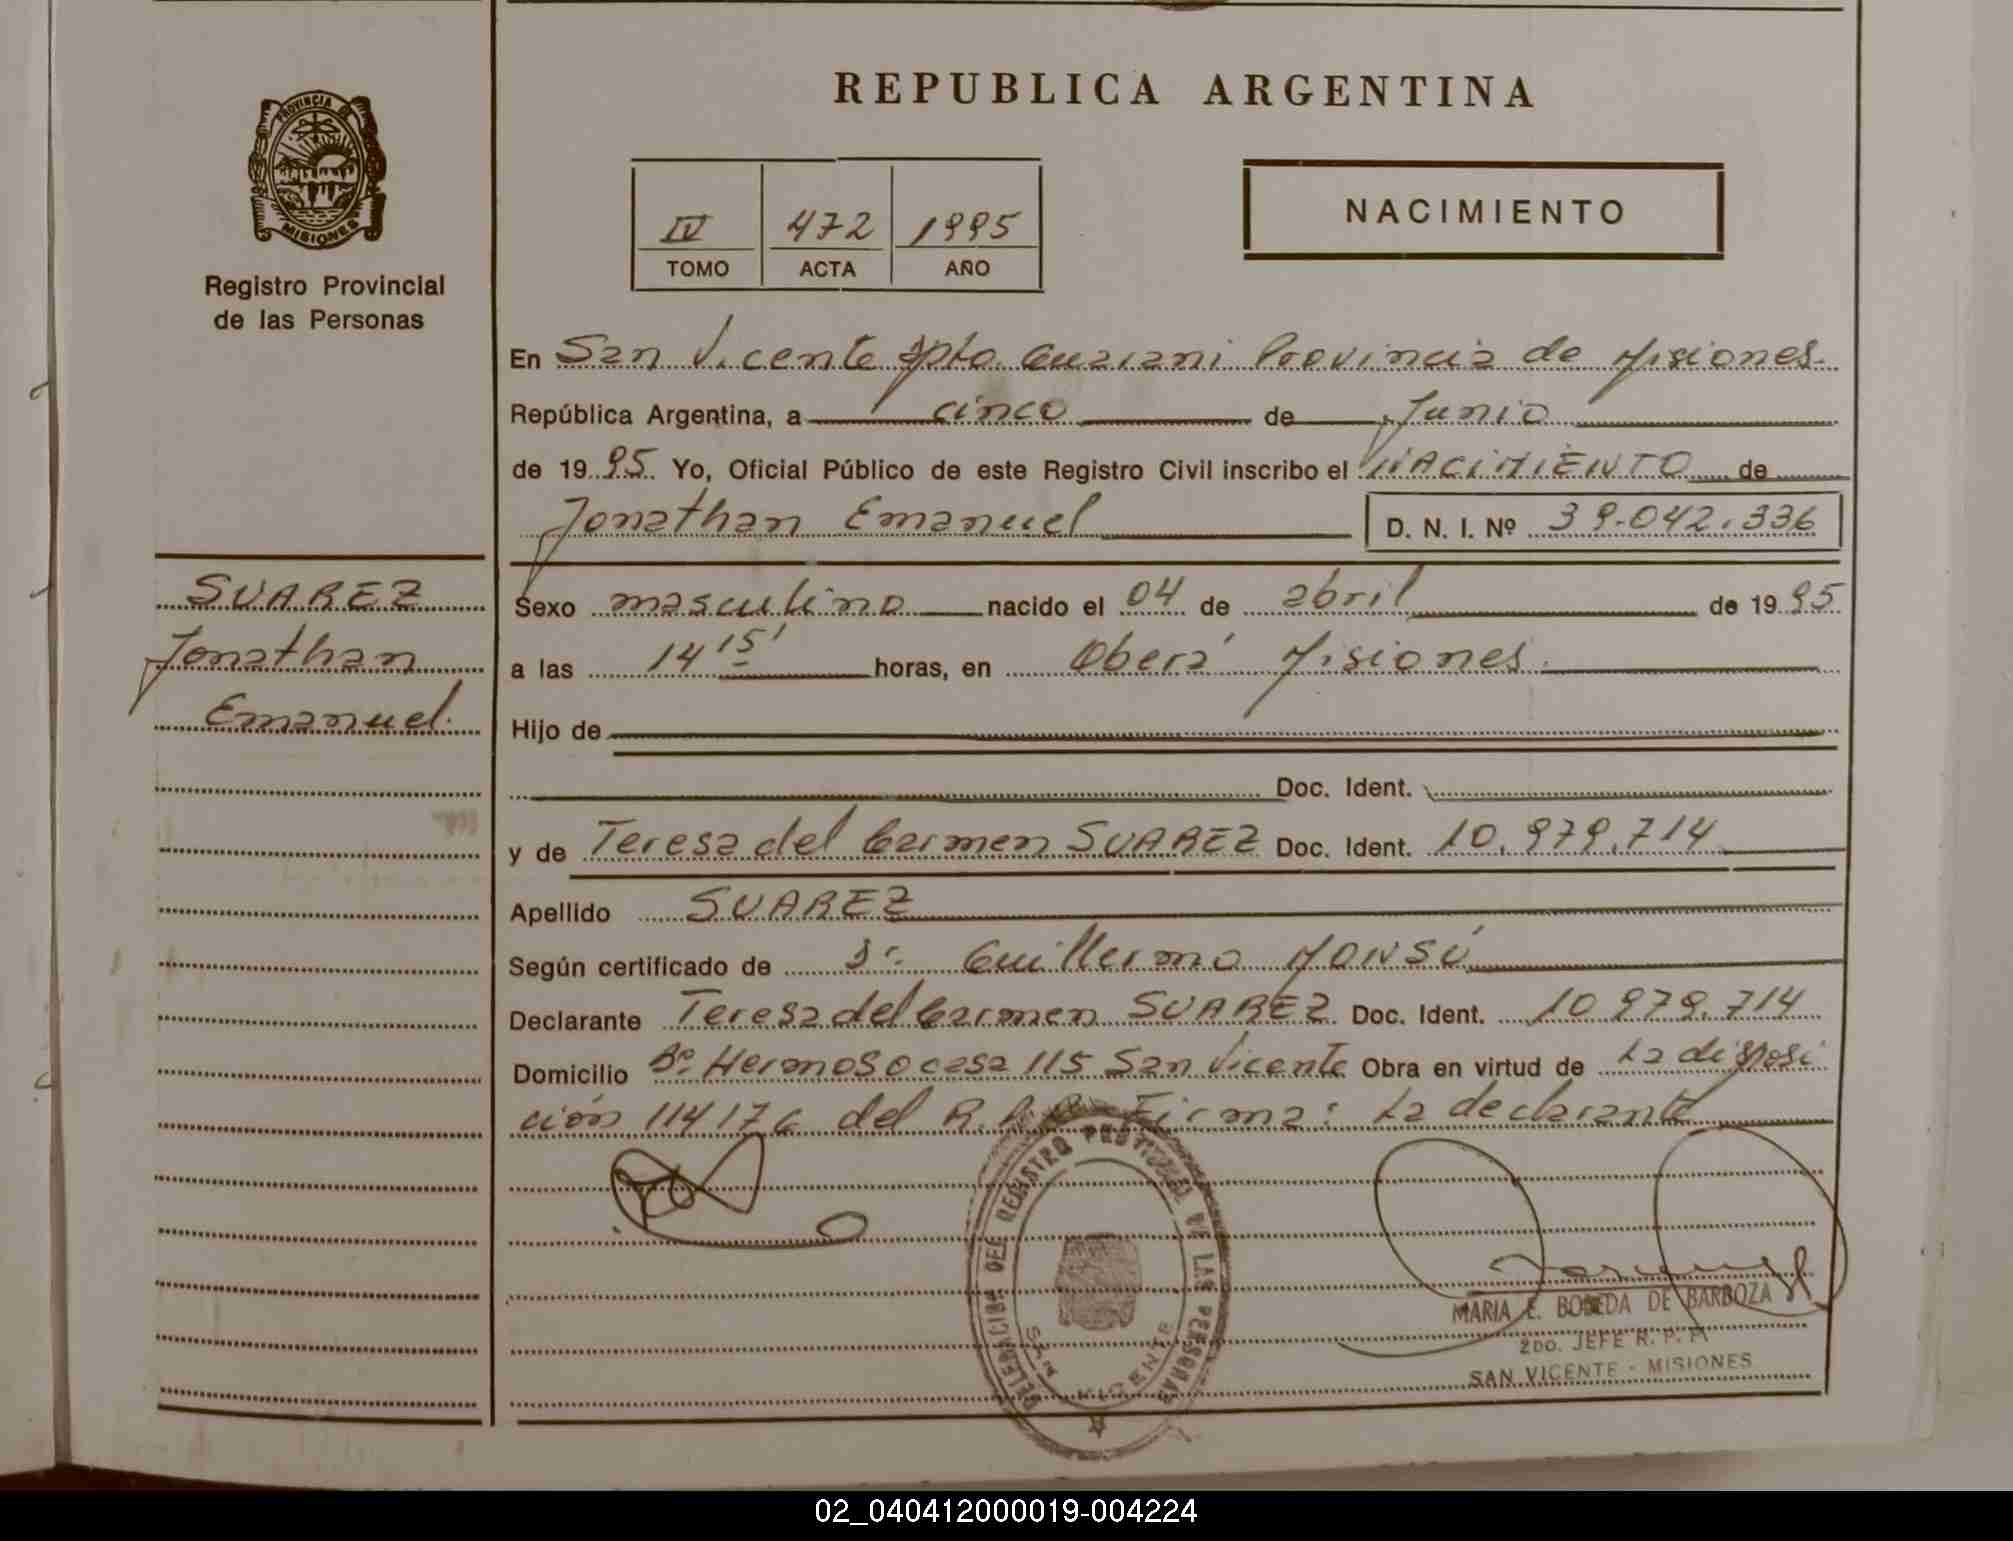 REPUBLICA ARGENTINA
PROVINCIA DE
MISIONES
Registro Provincial
de las Personas
IV 472 1995
TOMO ACTA AÑO
NACIMIENTO
En San Vicente Dpto. Guarani Provincia de Misiones.
República Argentina, a cinco de Junio
de 1995. Yo, Oficial Público de este Registro Civil inscribo el NACIMIENTO de
Jonathan Emanuel D. N. I. Nº 39.042.336
SUAREZ
Jonathan
Emanuel.
Sexo masculino nacido el 04 de abril de 1995
a las 14 15' horas, en Oberá Misiones.
Hijo de
Doc. Ident.
y de Teresa del Carmen SUAREZ Doc. Ident. 10.979.714
Apellido SUAREZ
Según certificado de Dr. Guillermo MONSÚ
Declarante Teresa del Carmen SUAREZ Doc. Ident. 10.979.714
Domicilio Bº Hermoso casa 115 San Vicente Obra en virtud de La disposi
ción 114/76 del R. Firma: La declarante
DELEGACION DEL REGISTRO PROVINCIAL DE LAS PERSONAS
SAN VICENTE
MARIA E. BOBEDA DE BARBOZA
2DO. JEFE R. P. P.
SAN VICENTE - MISIONES
02_040412000019-004224